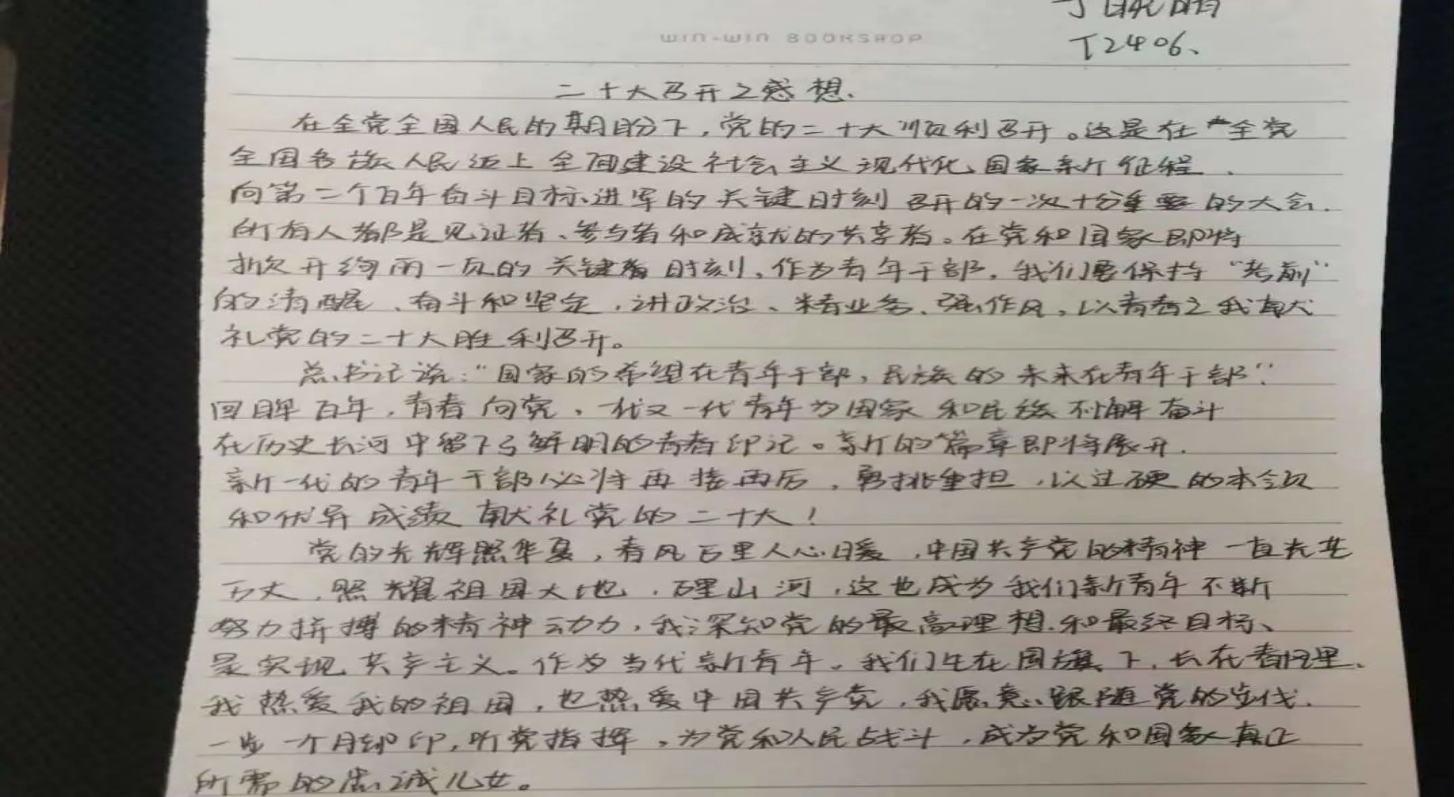 WIN-WIN BOOKSHOP
T2406、
二十大召开之感想.
在全党全国人民的期盼下,党的二十大顺利召开。这是在全党
全国各族人民迈上全面建设社会主义现代化国家新征程.
向第二个百年奋斗目标进军的关键时刻召开的一次十分重要的大会.
所有人都是见证者、参与者和成就的共享者。在党和国家即将
掀开绚丽一页的关键时刻,作为青年干部,我们要保持“赶考”
的清醒、奋斗和坚定,讲政治、精业务、强作风,以青春之我献
礼党的二十大胜利召开。
总书记说:“国家的希望在青年干部,民族的未来在青年干部”.
回眸百年,青春向党,一代又一代青年为国家和民族不懈奋斗
在历史长河中留下了鲜明的青春印记。新的篇章即将展开.
新一代的青年干部必将再接再后,勇挑重担,以过硬的本领
和优异成绩献礼党的二十大!
党的光辉照华夏,春风百里人心暖,中国共产党的精神一直光芒
万丈,照耀祖国大地,山河,这也成为我们新青年不断
努力拼搏的精神动力,我深知党的最高理想和最终目标、
是实现共产主义。作为当代新青年,我们生在国旗下,长在春风里.
我热爱我的祖国,也热爱中国共产党,我愿意跟随党的步伐.
一步一个脚印,听党指挥,为党和人民战斗,成为党和国家真正
所需的忠诚儿女。